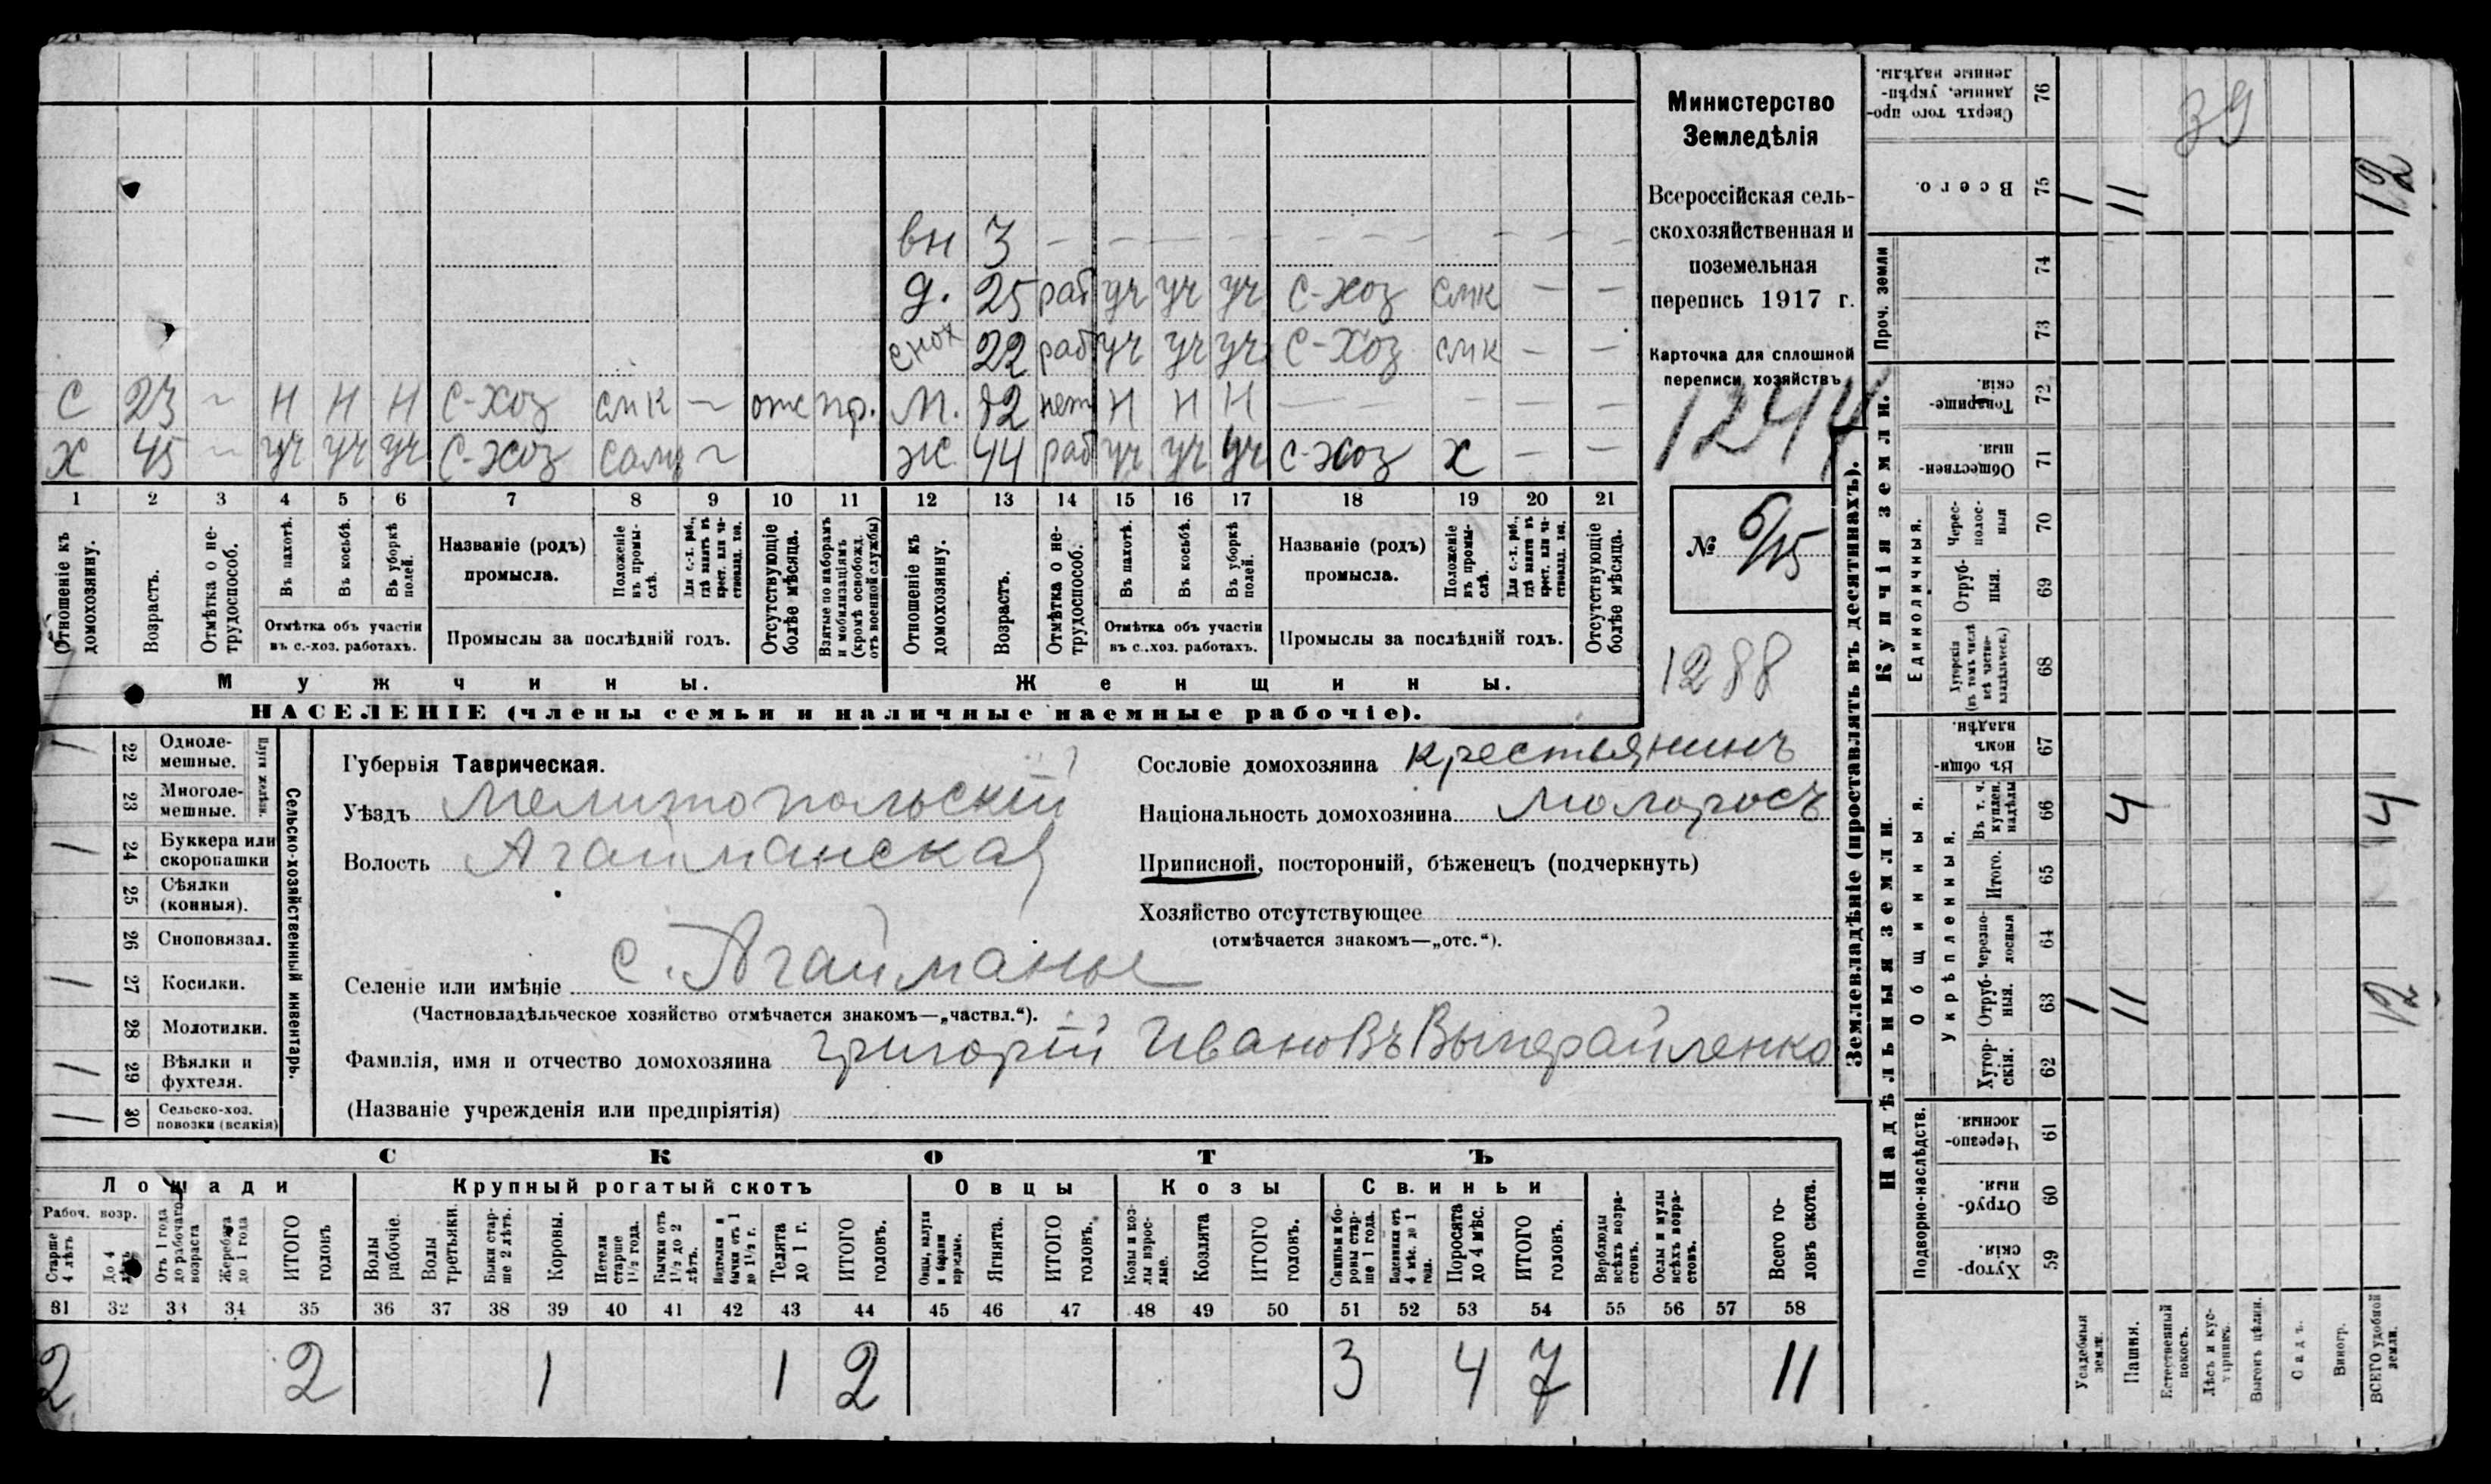 вн 3 – – – – – – – –
д. 25 раб уч уч уч с-хоз смк – –
снох 22 раб уч уч уч с-хоз смк – –
С 23 ~ Н Н Н С-хоз смк – отс пр. М. 82 нет Н Н Н – – – –
Х 45 ~ уч уч уч С-хоз сам ~ Ж 44 раб уч уч уч с-хоз х – –
1 2 3 4 5 6 7 8 9 10 11 12 13 14 15 16 17 18 19 20 21
Отношеніе къ домохозяину.
Возрастъ.
Отмѣтка о не-трудоспособ.
Въ пахотѣ.
Въ косьбѣ.
Въ уборкѣ полей.
Отмѣтка объ участіи
въ с.-хоз. работахъ.
Названіе (родъ)
промысла.
Положеніе въ промы-слѣ.
Для с.-х. раб., гдѣ занятъ въ крест. или ча-стновлад. хоз.
Промыслы за послѣдній годъ.
Отсутствующіе болѣе мѣсяца.
Взятые по наборамъ и мобилизаціямъ (кромѣ освобожд. отъ военной службы)
Отношеніе къ домохозяину.
Возрастъ.
Отмѣтка о не-трудоспособ.
Въ пахотѣ.
Въ косьбѣ.
Въ уборкѣ полей.
Отмѣтка объ участіи
въ с..хоз. работахъ.
Названіе (родъ)
промысла.
Положеніе въ промы-слѣ.
Для с.-х. раб., гдѣ занята въ крест. или ча-стновлад. хоз.
Промыслы за послѣдній годъ.
Отсутствующіе болѣе мѣсяца.
Мужчины.
Женщины.
НАСЕЛЕНІЕ (члены семьи и наличные наемные рабочіе).
Министерство
Земледѣлія
Всероссійская сель-
скохозяйственная и
поземельная
перепись 1917 г.
Карточка для сплошной
переписи хозяйствъ
1244
№ 6/15
1288
Сельско-хозяйственный инвентарь.
Плуги желѣзн.
1 22 Одноле-мешные.
23 Многоле-мешные.
1 24 Буккера или скоропашки
25 Сѣялки (конныя).
26 Сноповязал.
1 27 Косилки.
28 Молотилки.
1 29 Вѣялки и фухтеля.
1 30 Сельско-хоз. повозки (всякія)
Губернія Таврическая.
Уѣздъ Мелитопольскій
Волость Агайманская
Селеніе или имѣніе с. Агайманы
(Частновладѣльческое хозяйство отмѣчается знакомъ—„частвл.“).
Фамилія, имя и отчество домохозяина Григорій Ивановъ
(Названіе учрежденія или предпріятія)
Сословіе домохозяина крестьянинъ
Національность домохозяина малоросъ
Приписной, посторонній, бѣженецъ (подчеркнуть)
Хозяйство отсутствующее
(отмѣчается знакомъ—„отс.“).
СКОТЪ
Лошади
Крупный рогатый скотъ
Овцы
Козы
Свиньи
Рабоч. возр.
Старше 4 лѣтъ
До 4 лѣтъ
Отъ 1 года до рабочаго возраста
Жеребята до 1 года
ИТОГО головъ
Волы рабочіе.
Волы третьяки.
Быки стар-ше 2 лѣтъ.
Коровы.
Нетели старше 1½ года.
Бычки отъ 1½ до 2 лѣтъ.
Подтелки и бычки отъ 1 до 1½ г.
Телята до 1 г.
ИТОГО головъ.
Овцы, валухи и бараны взрослые.
Ягнята.
ИТОГО головъ.
Козы и коз-лы взрос-лые.
Козлята
ИТОГО головъ.
Свиньи и бо-ровы стар-ше 1 года.
Подсвинки отъ 4 мѣс. до 1 года.
Поросята до 4 мѣс.
ИТОГО головъ.
Верблюды всѣхъ возра-стовъ.
Ослы и мулы всѣхъ возра-стовъ.
Всего го-ловъ скота.
31 32 33 34 35 36 37 38 39 40 41 42 43 44 45 46 47 48 49 50 51 52 53 54 55 56 57 58
2 2 1 1 2 3 4 7 11
Землевладѣніе (проставлять въ десятинахъ).
Купчія земли.
Надѣльныя земли.
Проч. земли
Единоличныя.
Общинныя.
Укрѣпленныя.
Подворно-наслѣдств.
76 Сверхъ того про-данные, укрѣп-ленные надѣлы.
39
75 Всего.
1 11 12
74
73
72 Товарище-скія.
71 Обществен-ныя.
70 Черес-полос-ныя
69 Отруб-ныя.
68 Хуторскія (въ томъ числѣ всѣ частно-владѣльческ.)
67 Въ общин-номъ владѣн.
66 Въ т. ч. куплен. надѣлы
4 4
65 Итого.
64 Черезпо-лосныя
63 Отруб-ныя.
1 11 12
62 Хутор-скія.
61 Черезпо-лосныя.
60 Отруб-ныя.
59 Хутор-скія.
Усадебныя земли.
Пашня.
Естественный покосъ.
Лѣсъ и кус-тарникъ.
Выгонъ цѣлин.
Садъ.
Виногр.
ВСЕГО удобной земли.